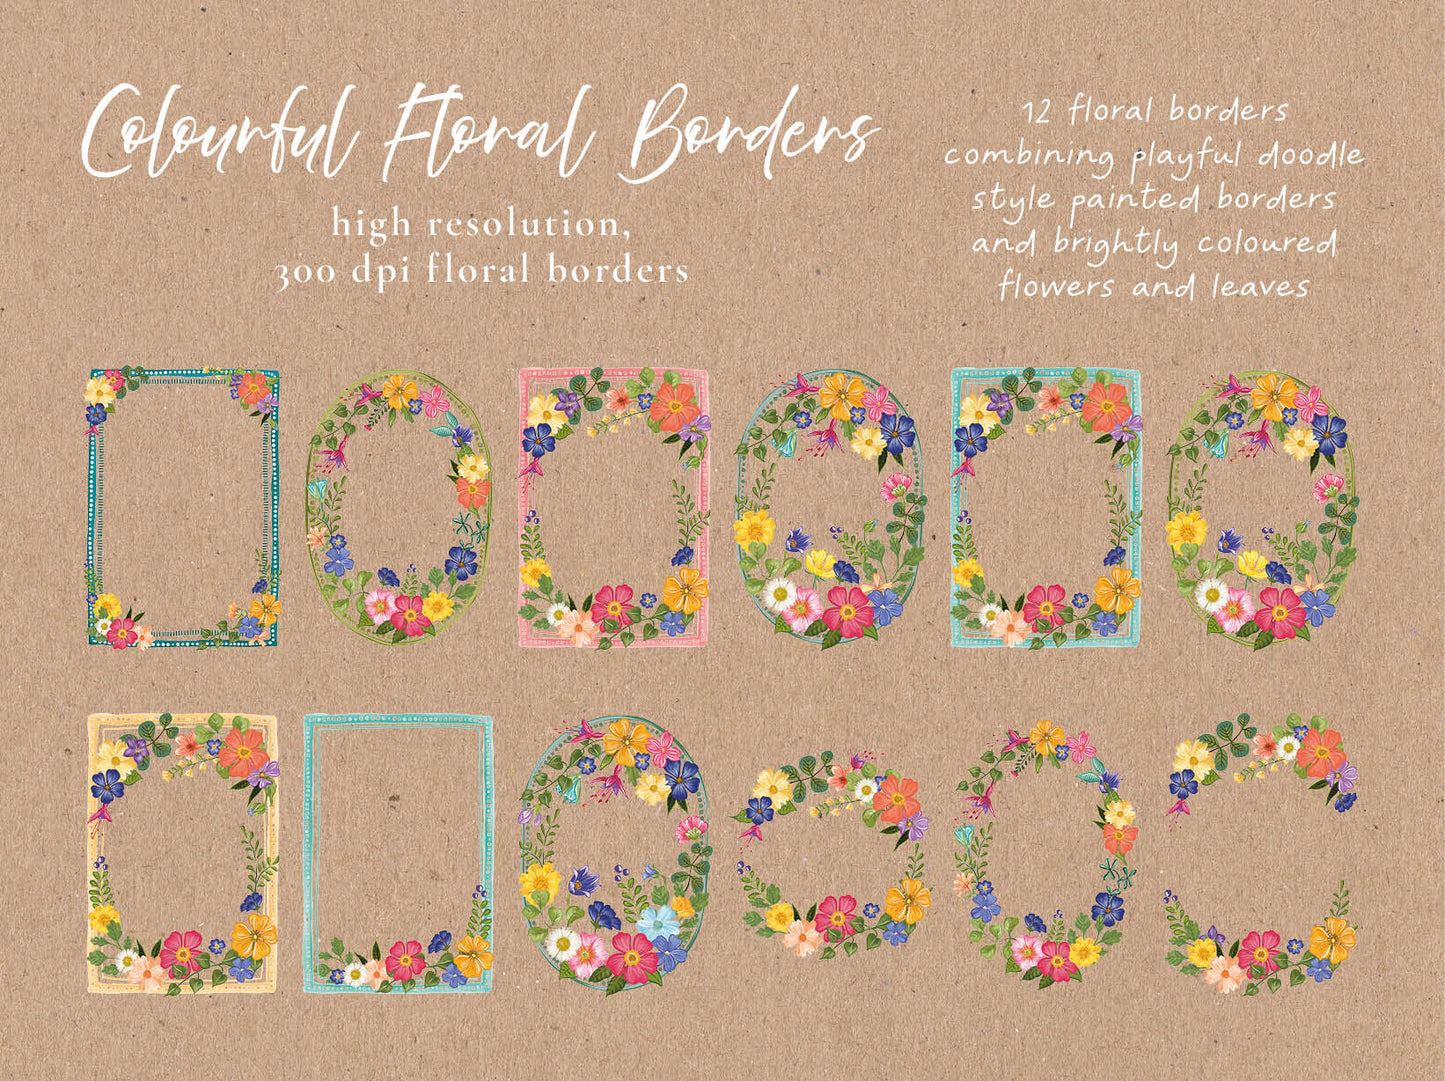 Colourful Floral Borders
high resolution,
300 dpi floral borders
12 floral borders
combining playful doodle
style painted borders
and brightly coloured
flowers and leaves